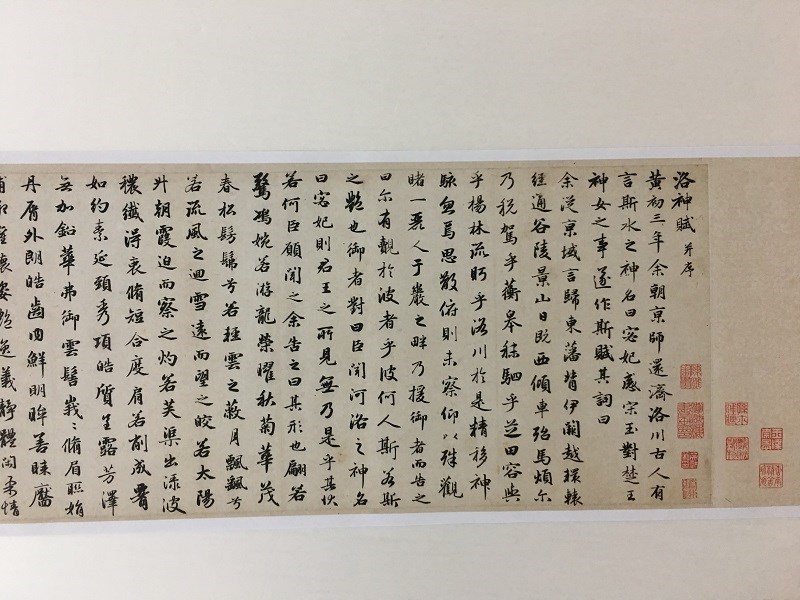 洛神賦 并序
黃初三年余朝京師還濟洛川古人有
言斯水之神名曰宓妃感宋玉對楚王
神女之事遂作斯賦其詞曰
余從京域言歸東藩背伊闕越轘轅
經通谷陵景山日既西傾車殆馬煩爾
乃稅駕乎蘅皋秣駟乎芝田容與
乎楊林流眄乎洛川於是精移神
駭忽焉思散俯則未察仰以殊觀
睹一麗人于巖之畔乃援御者而告之
曰尔有覿於彼者乎彼何人斯若斯
之豔也御者對曰臣聞河洛之神名
曰宓妃則君王之所見無乃是乎其狀
若何臣願聞之余告之曰其形也翩若
驚鴻婉若游龍榮曜秋菊華茂
春松髣髴兮若輕雲之蔽月飄颻兮
若流風之迴雪遠而望之皎若太陽
升朝霞迫而察之灼若芙渠出淥波
穠纖得衷脩短合度肩若削成腰
如約素延頸秀項皓質呈露芳澤
無加鉛華弗御雲髻峩〻脩眉聯娟
丹脣外朗皓齒內鮮明眸善睞靨
輔承權瓌姿豔逸義靜體閑柔情